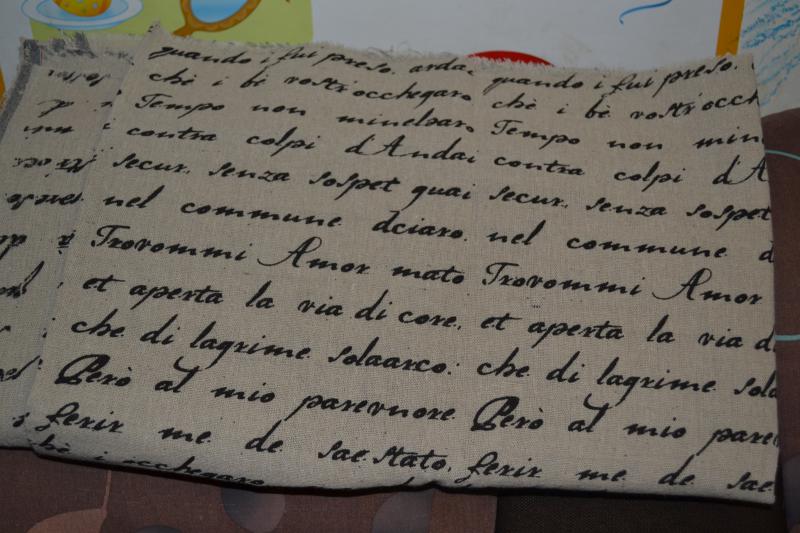 quando i fui preso. arda quando i fui preso.
chè i bè vostriocchegaro chè i bè vostriocch
Tempo non minelsaro Tempo non min
contra colpi d'Andai contra colpi d'A
secur. senza sospet guai secur. senza sospet
nel commune dciaro. nel commune d
Trovommi Amor mato Trovommi Amor
et aperta la via di core. et aperta la via d
che di lagrime solaarco: che di lagrime sola
Però al mio parevnore Però al mio parev
ferir me de saestato. ferir me de sae
hè i occhegaro